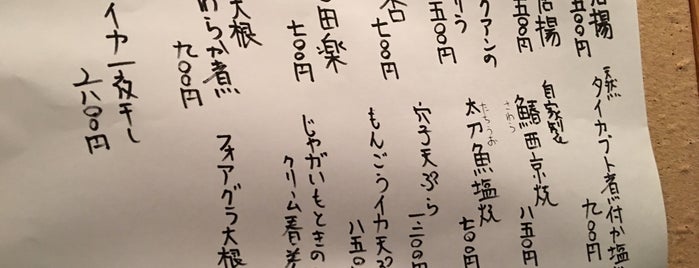 揚
五〇〇円
天然
タイカブト煮付か塩
九〇〇円
揚
五〇円
自家製
さわら
鰆西京焼
八五〇円
クアンの
り
五〇円
たちうお
太刀魚塩焼
七〇〇円
七〇円
穴子天ぷら
一二〇〇円
田楽
七〇〇円
もんごうイカ天ぷ
八五〇
大根
わらか煮
九〇〇円
じゃがいもときの
クリーム春巻
イカ一夜干し
一八〇〇円
フォアグラ大根